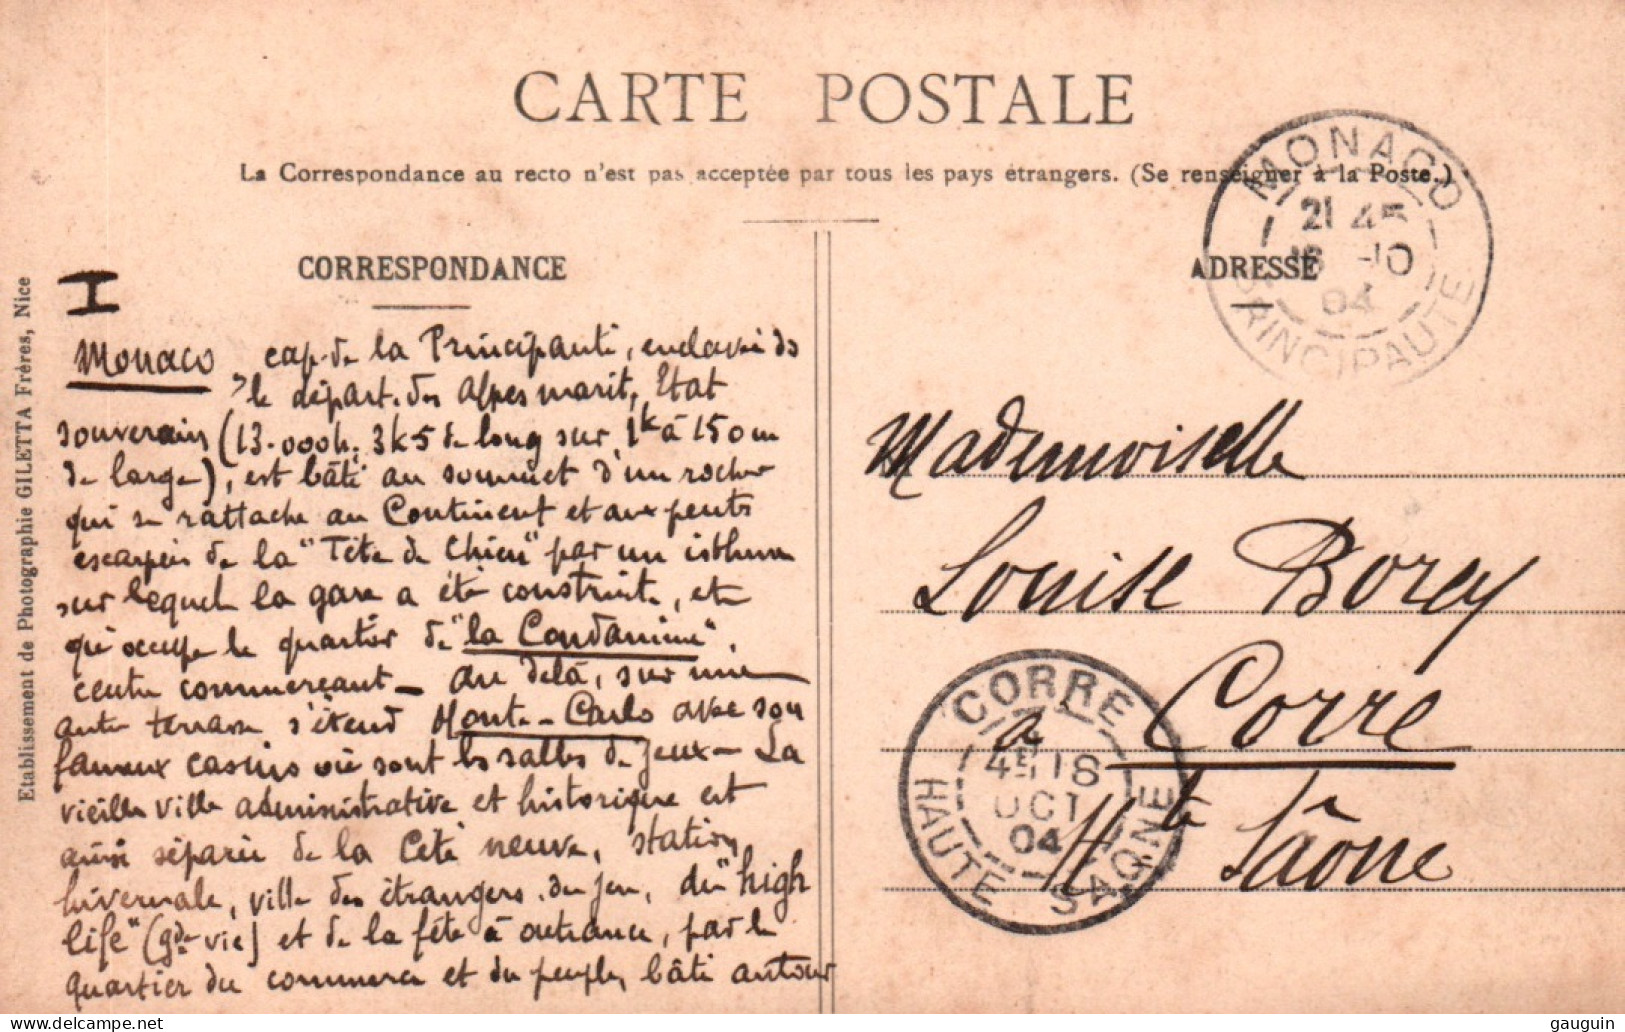 CARTE POSTALE
La Correspondance au recto n'est pas acceptée par tous les pays étrangers. (Se renseigner à la Poste.)
CORRESPONDANCE
ADRESSE
MONACO
21 45
16 -10
04
PRINCIPAUTE
Etablissement de Photographie GILETTA Frères, Nice
I
Monaco, cap. de la Principauté, enclavée ds
le départ. des Alpes marit, Etat
souverain (13.000h. 3k5 de long sur 1k à 150m
de large), est bâtie au sommet d'un rocher
qui se rattache au Continent et aux pentes
escarpées de la "Tête de Chien" par un isthme
sur lequel la gare a été construite, et
qu'occupe le quartier de "la Condamine"
centre commerçant - au delà, sur une
autre terrasse s'étend Monte-Carlo avec son
fameux casino où sont les salles de jeux - La
vieille ville administrative et historique est
ainsi séparée de la Cité neuve, station
hivernale, ville des étrangers, du jeu, du "high
life" (gde vie) et de la fête à outrance, par le
quartier du commerce et du peuple, bâti autour
Mademoiselle
Louise Borey
à Corre
Hte Saône
CORRE
4E 18
OCT
04
HAUTE SAONE
gauguin © www.delcampe.net